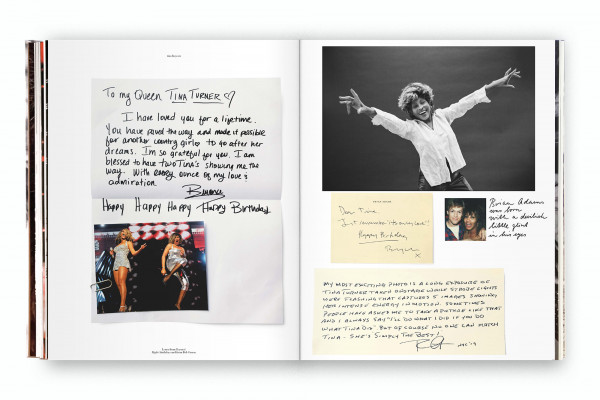 To my Queen TINA TURNER ♡
I have loved you for a lifetime.
You have paved the way and made it possible
for another country girl to go after her
dreams. I'm so grateful for you. I am
blessed to have two Tina's showing me the
way. With every ounce of my love &
admiration.
Beyonce
Happy Happy Happy Happy Birthday
Dear Tina
Happy Birthday
x
Brian Adams
was born
with a devilish
little glint
in his eyes
MY MOST EXCITING PHOTO IS A LONG EXPOSURE OF
TINA TURNER TAKEN ONSTAGE WHILE STROBE LIGHTS
WERE FLASHING THAT CAPTURED 5 IMAGES SHOWING
HER INTENSE ENERGY IN MOTION. SOMETIMES
PEOPLE HAVE ASKED ME TO TAKE A PICTURE LIKE THAT
AND I ALWAYS SAY "I'LL DO WHAT I DID IF YOU DO
WHAT TINA DID". BUT OF COURSE NO ONE CAN MATCH
TINA - SHE'S SIMPLY THE BEST!
NYC '19